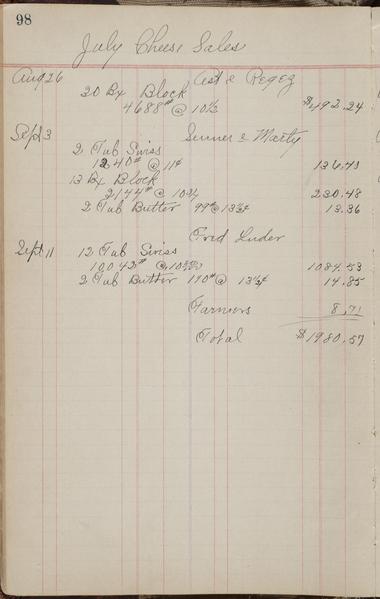 98
July Cheese Sales
Aug 26 Ast & Regez
20 Bx Block
4688# @ 10½ $492.24
Sept 3 Senner & Marty
2 Tub Swiss
1240# @ 11¢ 136.40
13 Bx Block
2144# @ 10¾ 230.48
2 Tub Butter 99# @ 13½¢ 13.36
Fred Luder
Sept 11 12 Tub Swiss
10042# @ 1084.53
2 Tub Butter 110# @ 13½¢ 14.85
Farmers 8.71
Total $1980.57